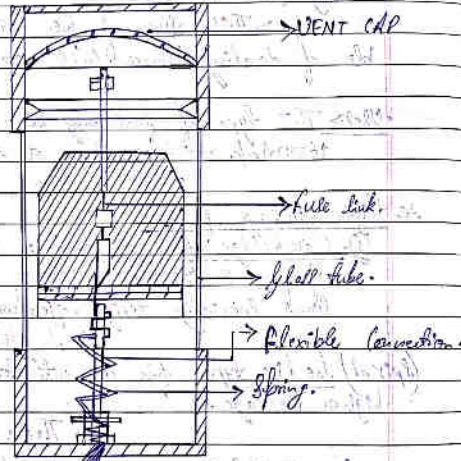 VENT CAP
Fuse link.
Glass tube.
Flexible Connection.
Spring.